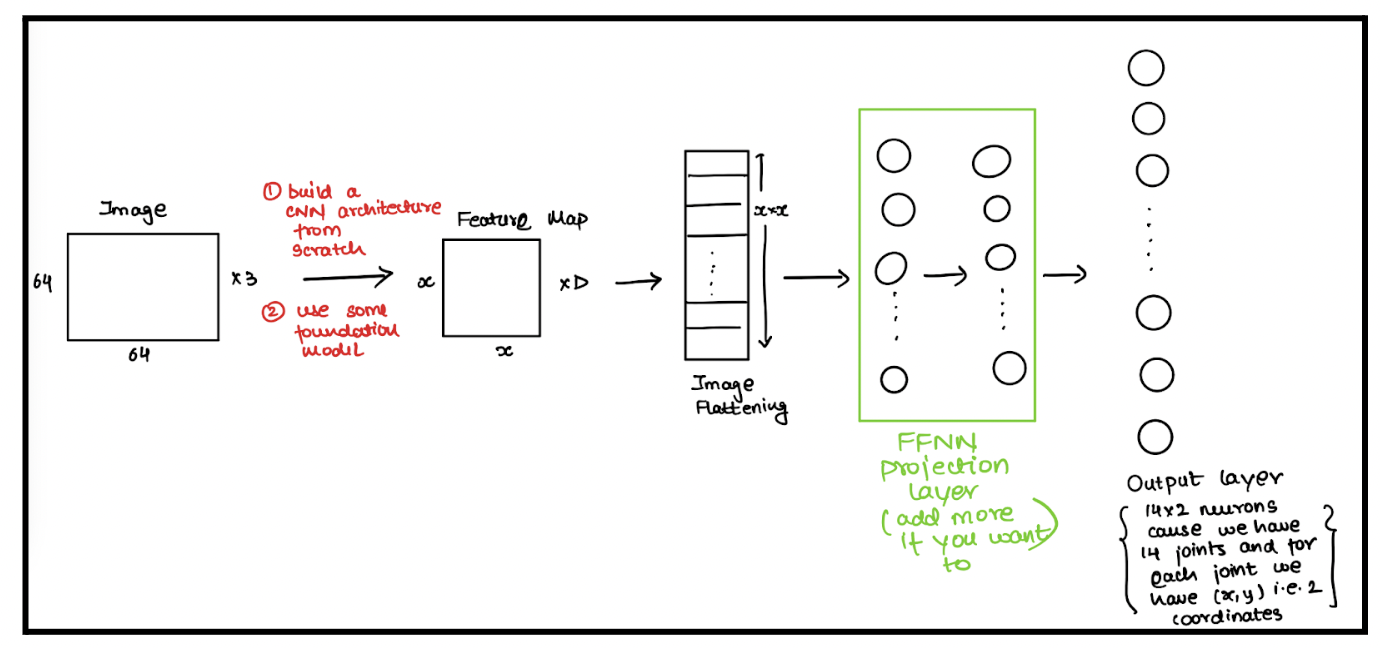 Image
64
x3
64
① build a
CNN architecture
from
scratch
② use some
foundation
model
Feature Map
x
xD
x
x*x
Image
Flattening
FFNN
projection
layer
(add more
if you want)
to
Output layer
{ 14x2 neurons }
cause we have
14 joints and for
each joint we
have (x,y) i.e. 2
coordinates